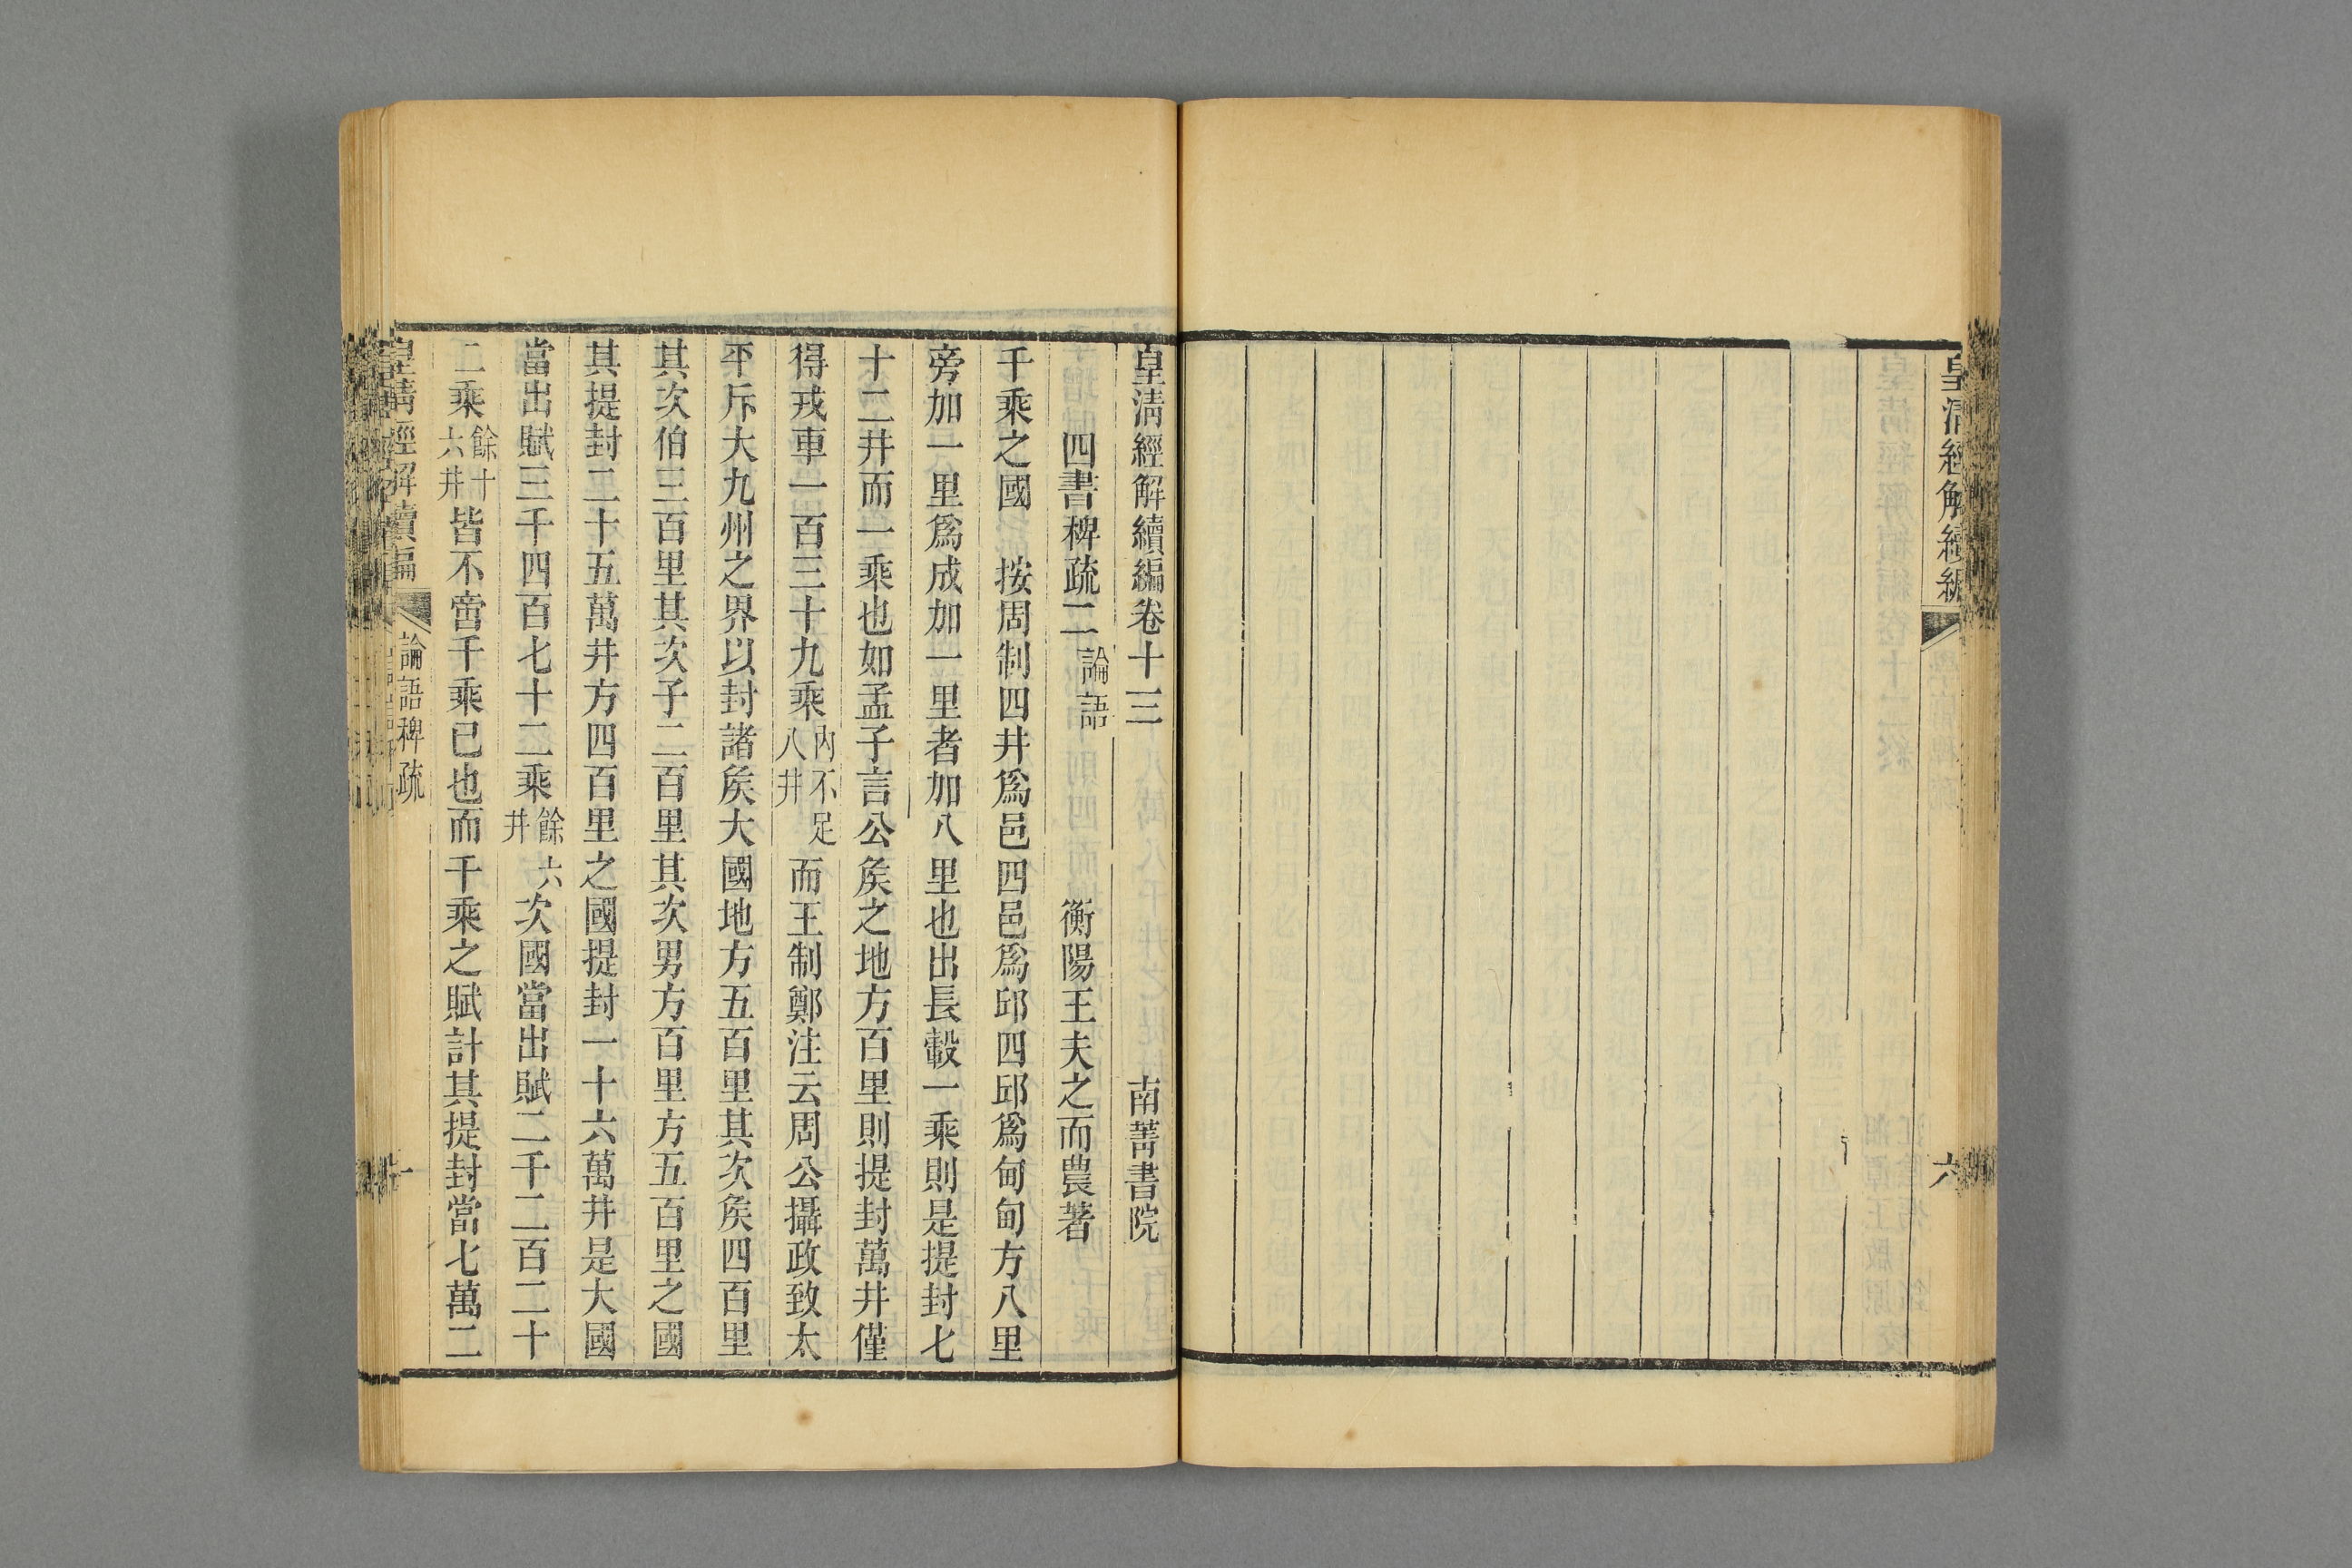 皇清經解續編
六
皇清經解續編卷十三 南菁書院
四書稗疏二 論語 衡陽王夫之而農著
千乘之國 按周制四井爲邑四邑爲邱四邱爲甸甸方八里
旁加一里爲成加一里者加八里也出長轂一乘則是提封七
十二井而一乘也如孟子言公矦之地方百里則提封萬井僅
得戎車一百三十九乘內不足八井而王制鄭注云周公攝政致太
平斥大九州之界以封諸矦大國地方五百里其次矦四百里
其次伯三百里其次子二百里其次男方百里方五百里之國
其提封二十五萬井方四百里之國提封一十六萬井是大國
當出賦三千四百七十二乘餘六井次國當出賦二千二百二十
二乘餘十六井皆不啻千乘已也而千乘之賦計其提封當七萬二
皇清經解續編 論語稗疏 一